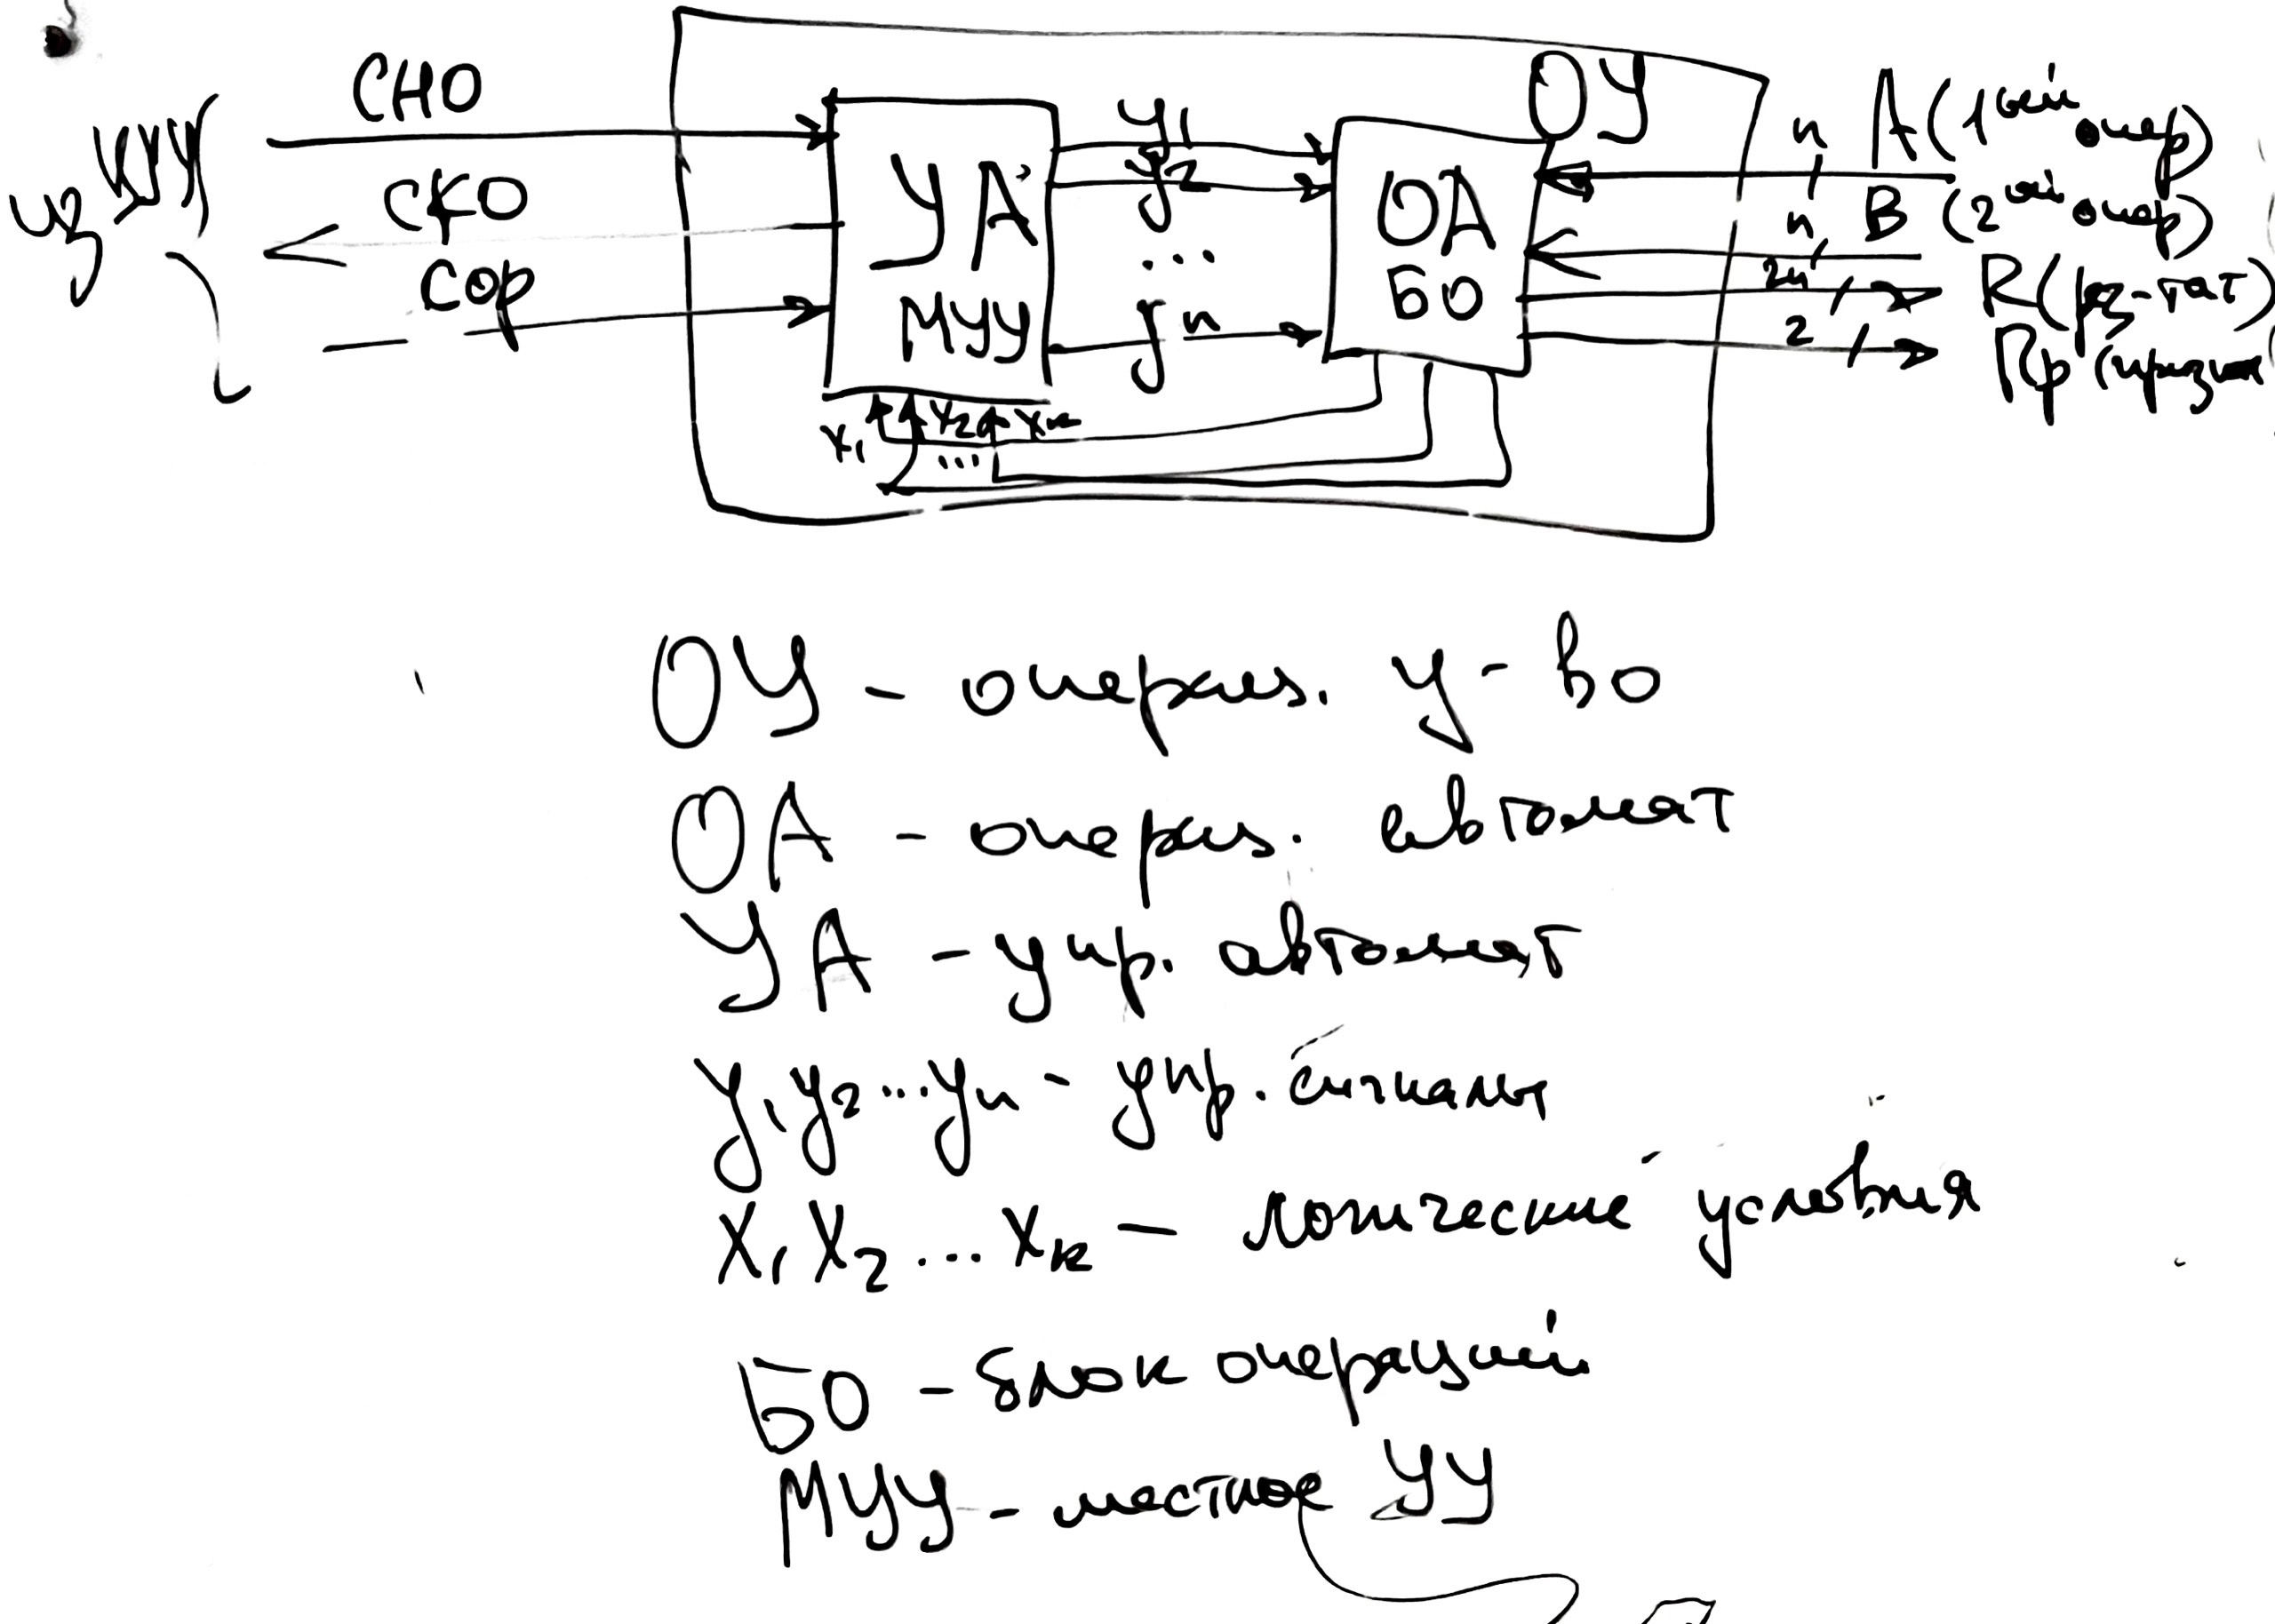 СНО
из ЦУУ
СКО
Сор
УА
МУУ
y1
y2
...
yn
ОУ
ОА
БО
n A (1ый опер)
n B (2ой опер)
2n R (рез-тат)
2 Rp (признак
x1 x2 xк
...
ОУ - операц. у-во
ОА - операц. автомат
УА - упр. автомат
y1 y2 ... yn - упр. сигналы
x1 x2 ... xк - логические условия
БО - блок операций
МУУ - местное УУ